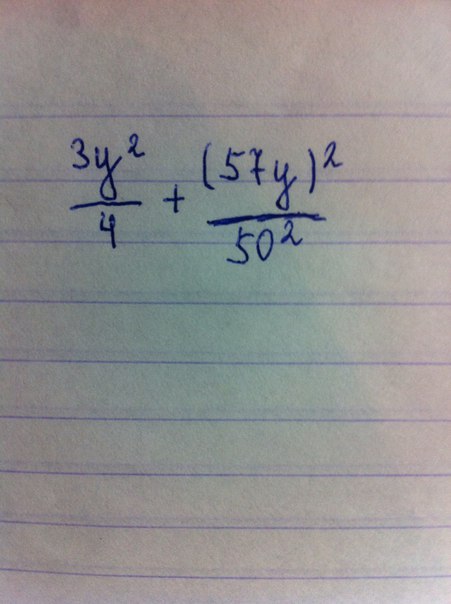 3y² / 4 + (57y)² / 50²